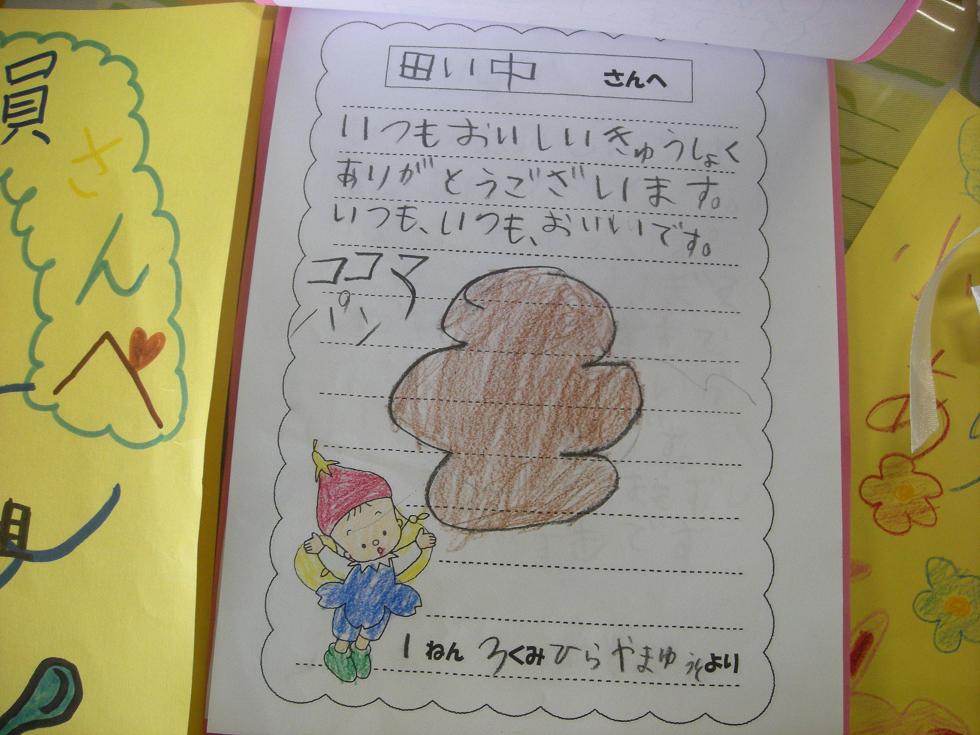 員
さんへ
田い中 さんへ
いつもおいしいきゅうしょく
ありがとうございます。
いつも、いつも、おいしいです。
ココマ
パン
1 ねん 3くみ ひらやまゆうより